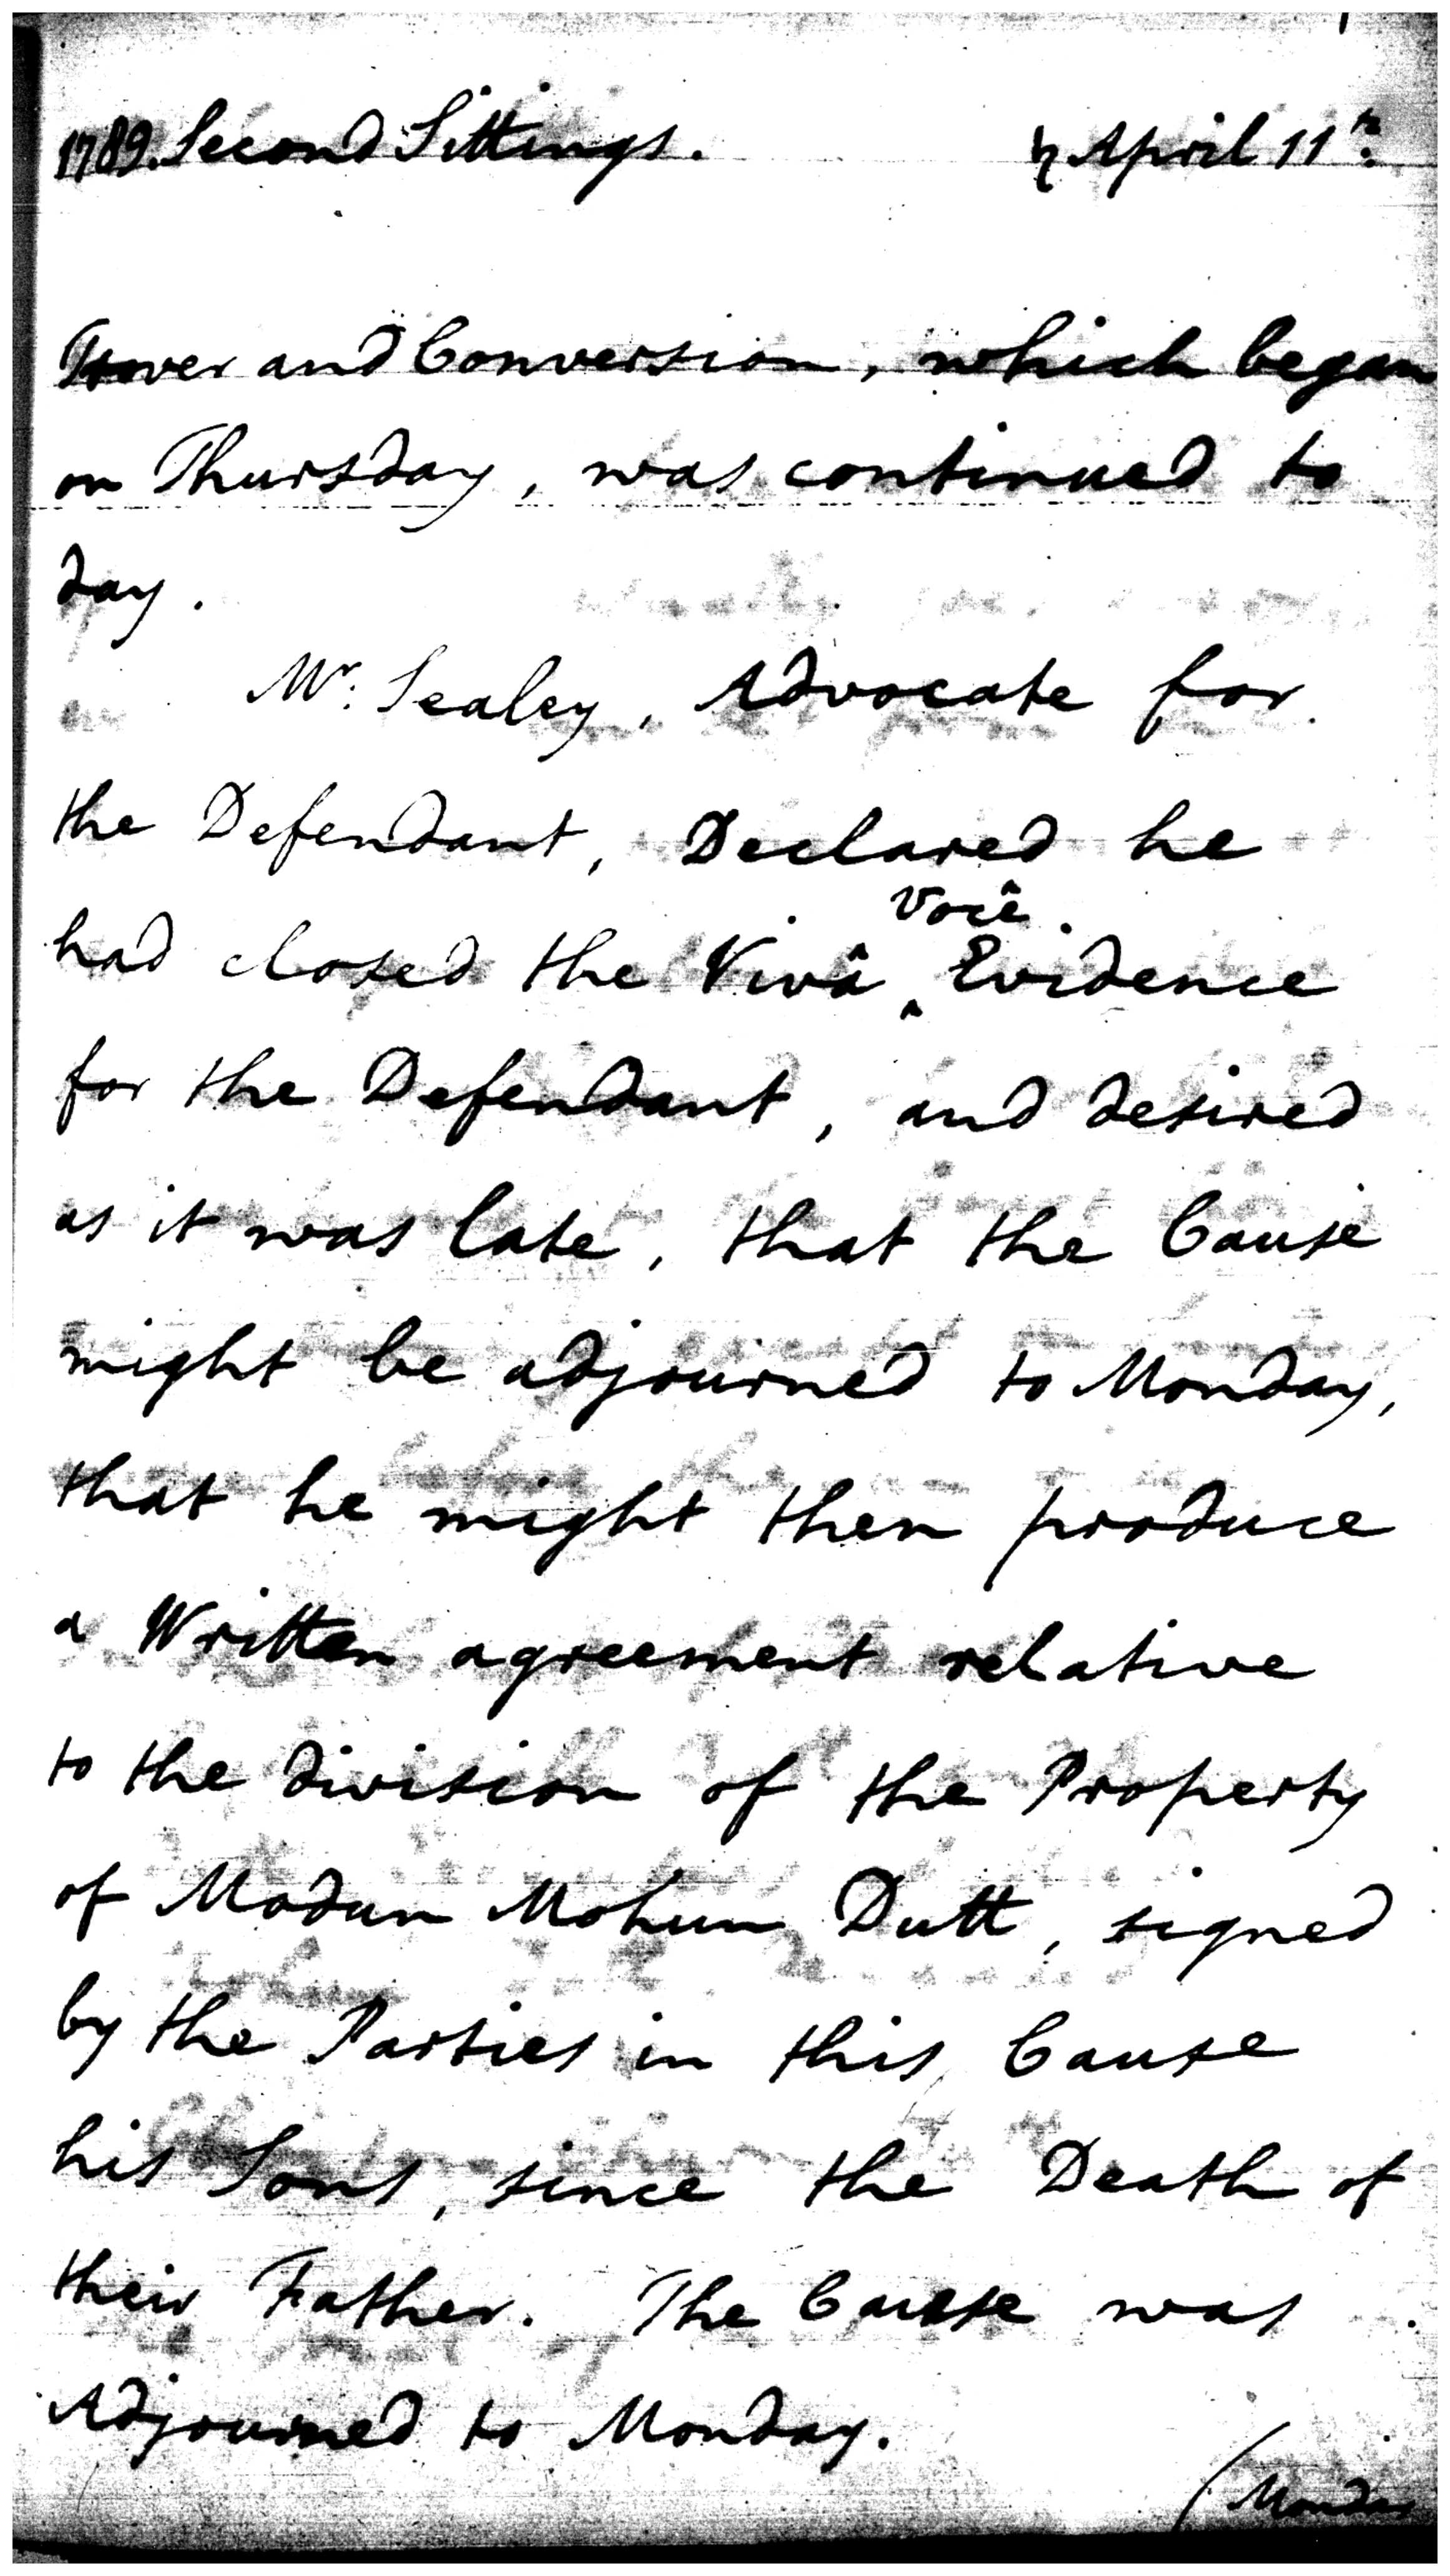 1789. Second Sittings. ♄ April 11th.
Trover and Conversion, which began
on Thursday, was continued to
day.
Mr. Sealey, Advocate for
the Defendant, Declared he
had closed the Vivâ ‸ Você Evidence
for the Defendant, and desired
as it was late, that the Cause
might be adjourned to Monday,
that he might then produce
a Written agreement relative
to the division of the Property
of Modun Mohun Dutt, signed
by the Parties in this Cause
his Sons, since the Death of
their Father. The Cause was
Adjourned to Monday.
(Monday